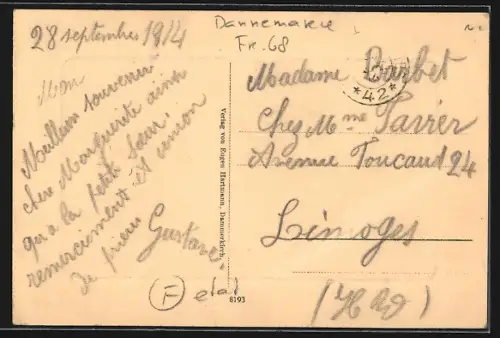 28 septembre 1914
Dannemarie
Fr. 68
Meilleur souvenir
chère Marguerite ainsi
qu'a la petite Sœur,
remerciement et union
de prière
Gustave
Verlag von Eugen Hartmann, Dammerkirch.
*42*
Madame Barbet
Chez Mme Pavier
Avenue Foucaud 24
Limoges
(H V)
F état
8193